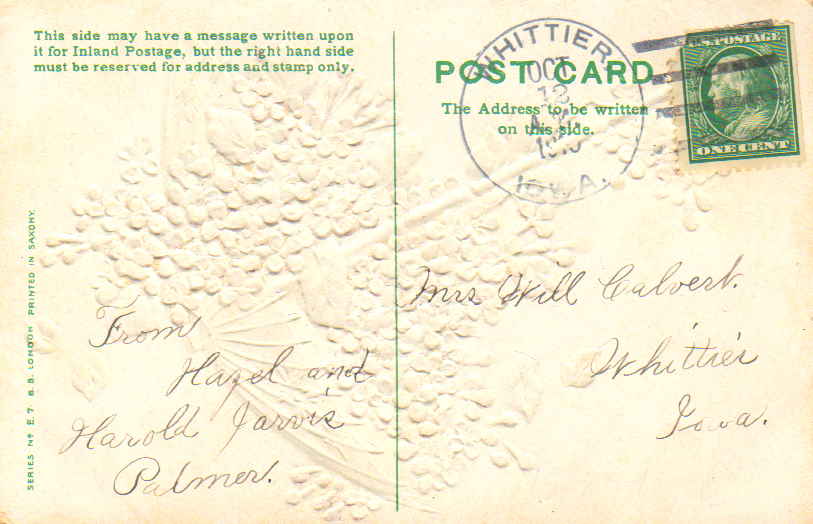 This side may have a message written upon
it for Inland Postage, but the right hand side
must be reserved for address and stamp only.
POST CARD
The Address to be written
on this side.
WHITTIER
OCT
13
1910
IOWA.
U.S. POSTAGE
ONE CENT
Mrs Will Calvert.
Whittier
Iowa.
From
Hazel and
Harold Jarvis
Palmer.
SERIES No E. 7. B.B. LONDON PRINTED IN SAXONY.